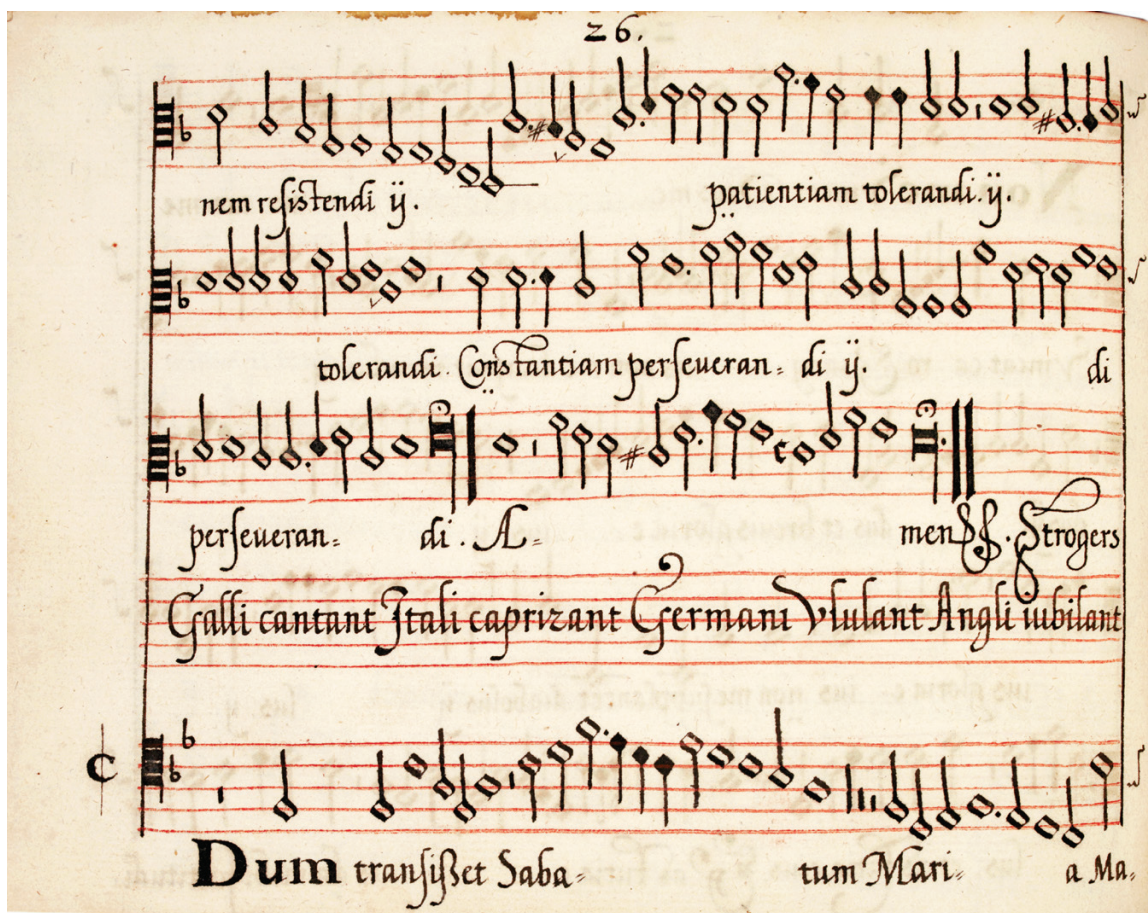 26.
nem resistendi ij. patientiam tolerandi. ij.
tolerandi. Constantiam perseueran- di ij. di
perseueran- di. A- men Strogers
Galli cantant Itali caprizant Germani Vlulant Angli iubilant
Dum transisset Saba- tum Mari- a Ma-